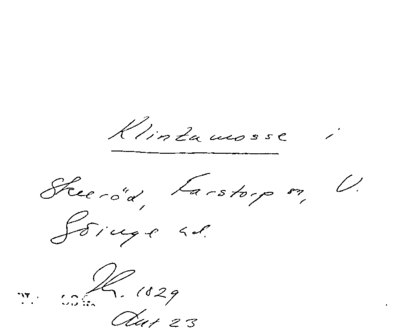 Klintamosse i
Skeröd, Farstorp sn, V.
Göinge hd.
1829
23